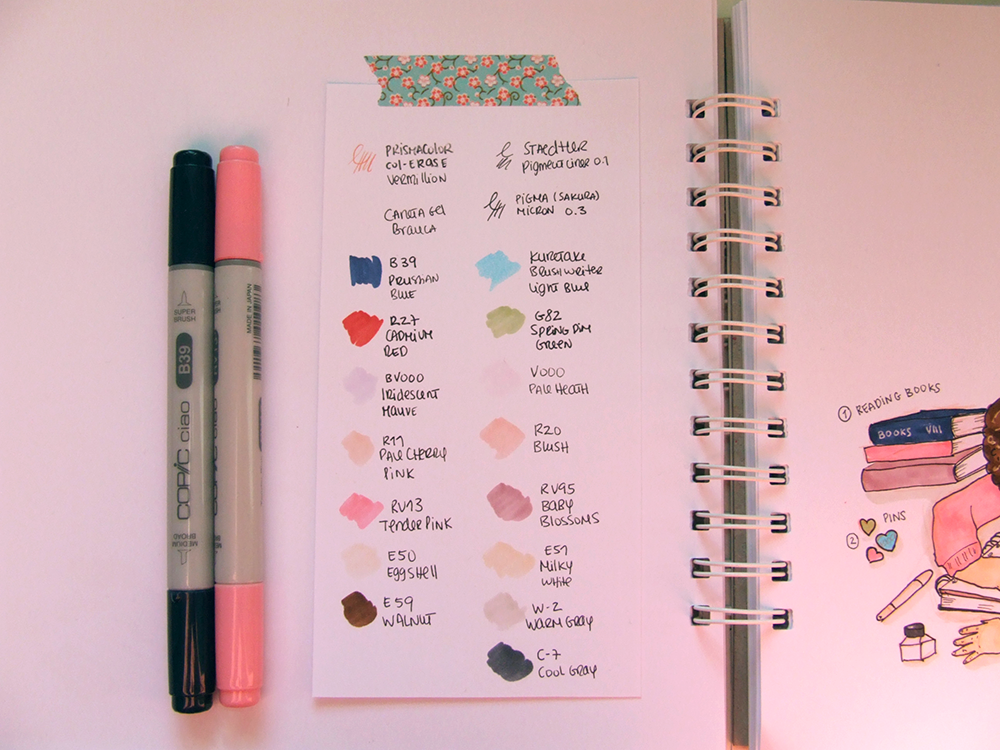 SUPER
BRUSH
B39
COPIC ciao
MEDIUM
BROAD
MADE IN JAPAN
PRISMACOLOR
COL-ERASE
VERMILLION
CANETA GEL
BRANCA
B39
PRUSSIAN
BLUE
R27
CADMIUM
RED
BV000
IRIDESCENT
MAUVE
R11
PALE CHERRY
PINK
RV13
TENDER PINK
E50
EGGSHELL
E59
WALNUT
STAEDTLER
PIGMENT LINER 0.1
PIGMA (SAKURA)
MICRON 0.3
KURETAKE
BRUSH WRITER
LIGHT BLUE
G82
SPRING DIM
GREEN
V000
PALE HEATH
R20
BLUSH
RV95
BABY
BLOSSOMS
E51
MILKY
WHITE
W-2
WARM GRAY
C-7
COOL GRAY
1 READING BOOKS
BOOKS VIII
2 PINS